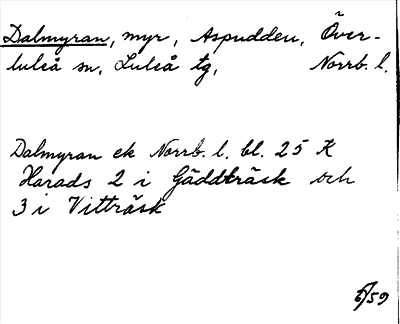 Dalmyran, myr, Aspudden, Över-
luleå sn, Luleå tg, Norrb. l.
Dalmyran ek Norrb. l. bl. 25 K
Harads 2 i Gäddträsk och
3 i Vitträsk
6/59